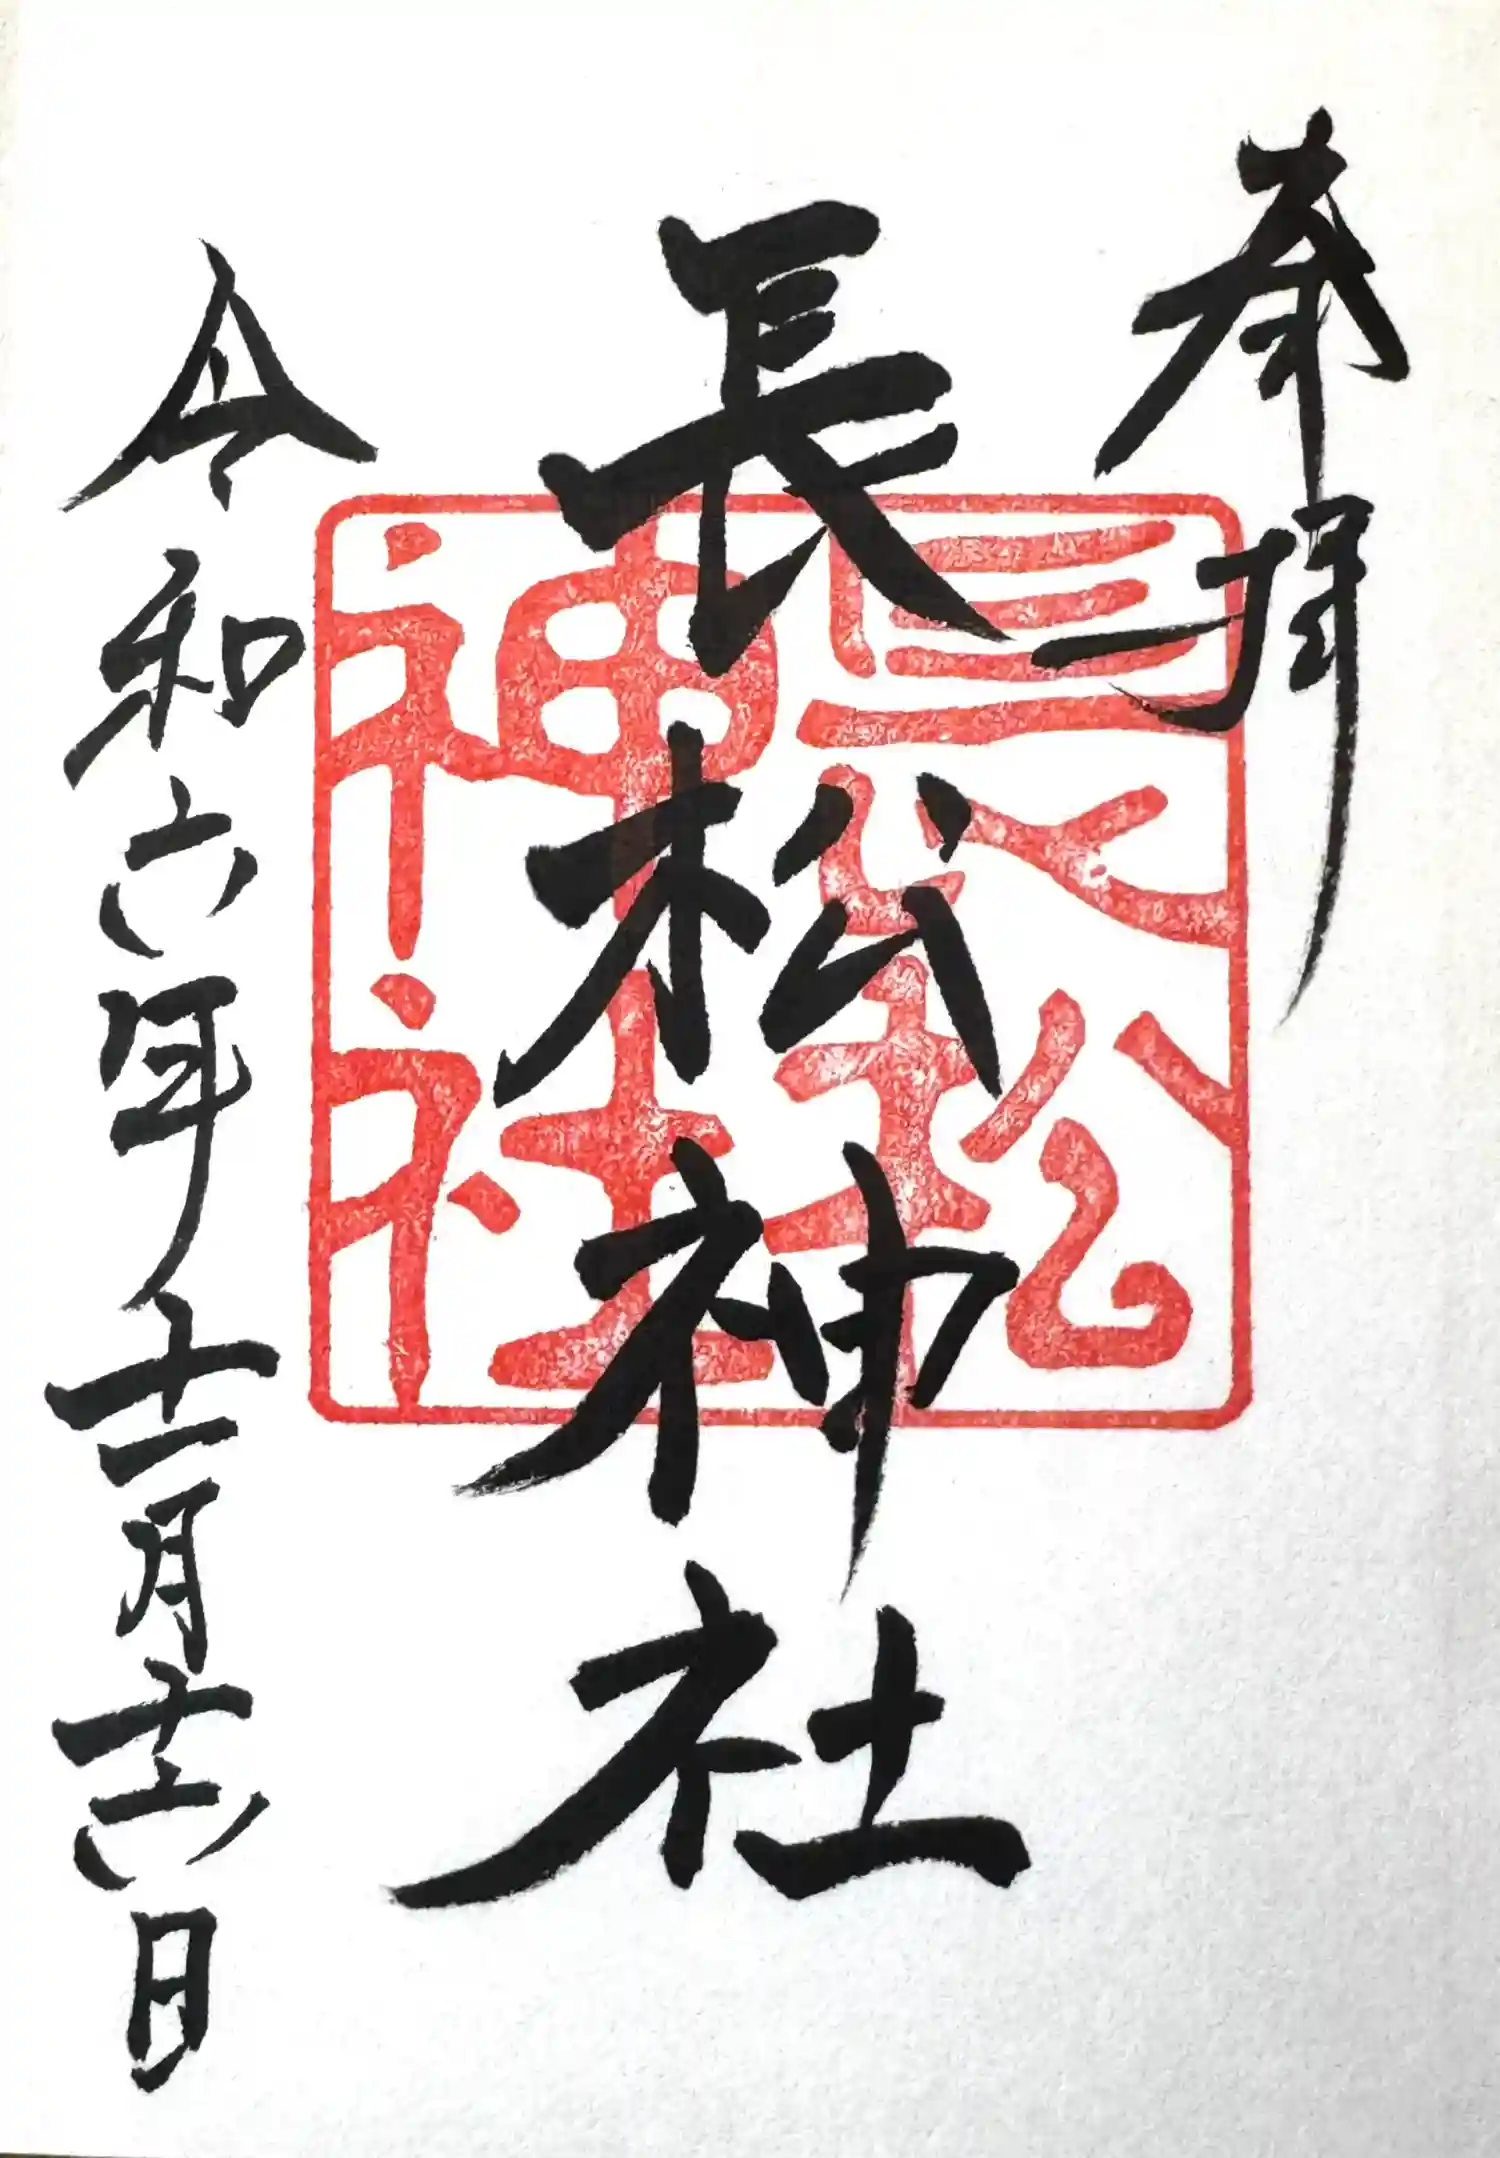 奉拝
長松神社
長松神社
令和六年十一月十六日